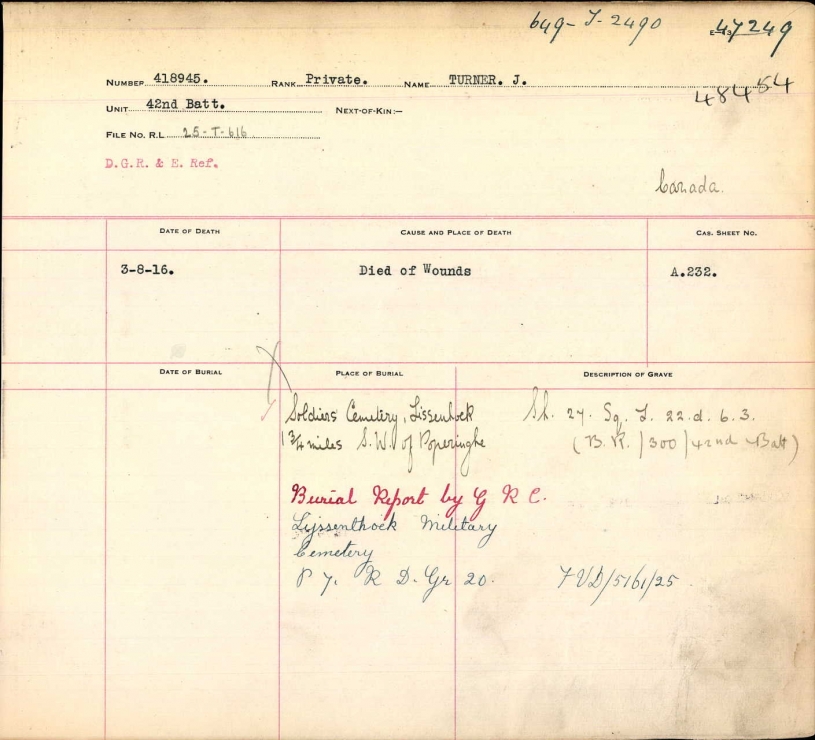 649-T-2490 47249
NUMBER 418945. RANK Private. NAME TURNER. J.
48454
UNIT 42nd Batt. NEXT-OF-KIN:—
FILE NO. R.L. 25-T-616
D.G.R. & E. Ref.
Canada.
DATE OF DEATH CAUSE AND PLACE OF DEATH CAS. SHEET NO.
3-8-16. Died of Wounds A.232.
DATE OF BURIAL PLACE OF BURIAL DESCRIPTION OF GRAVE
Soldiers Cemetery, Lissenhock Sh. 27. Sq. L. 22.d. 6.3.
1 3/4 miles S.W. of Poperinghe (B.R. /300/42nd Batt)
Burial Report by G R C.
Lijssenthoek Military
Cemetery
P 7. R D. Gr 20. 7VD/5161/25